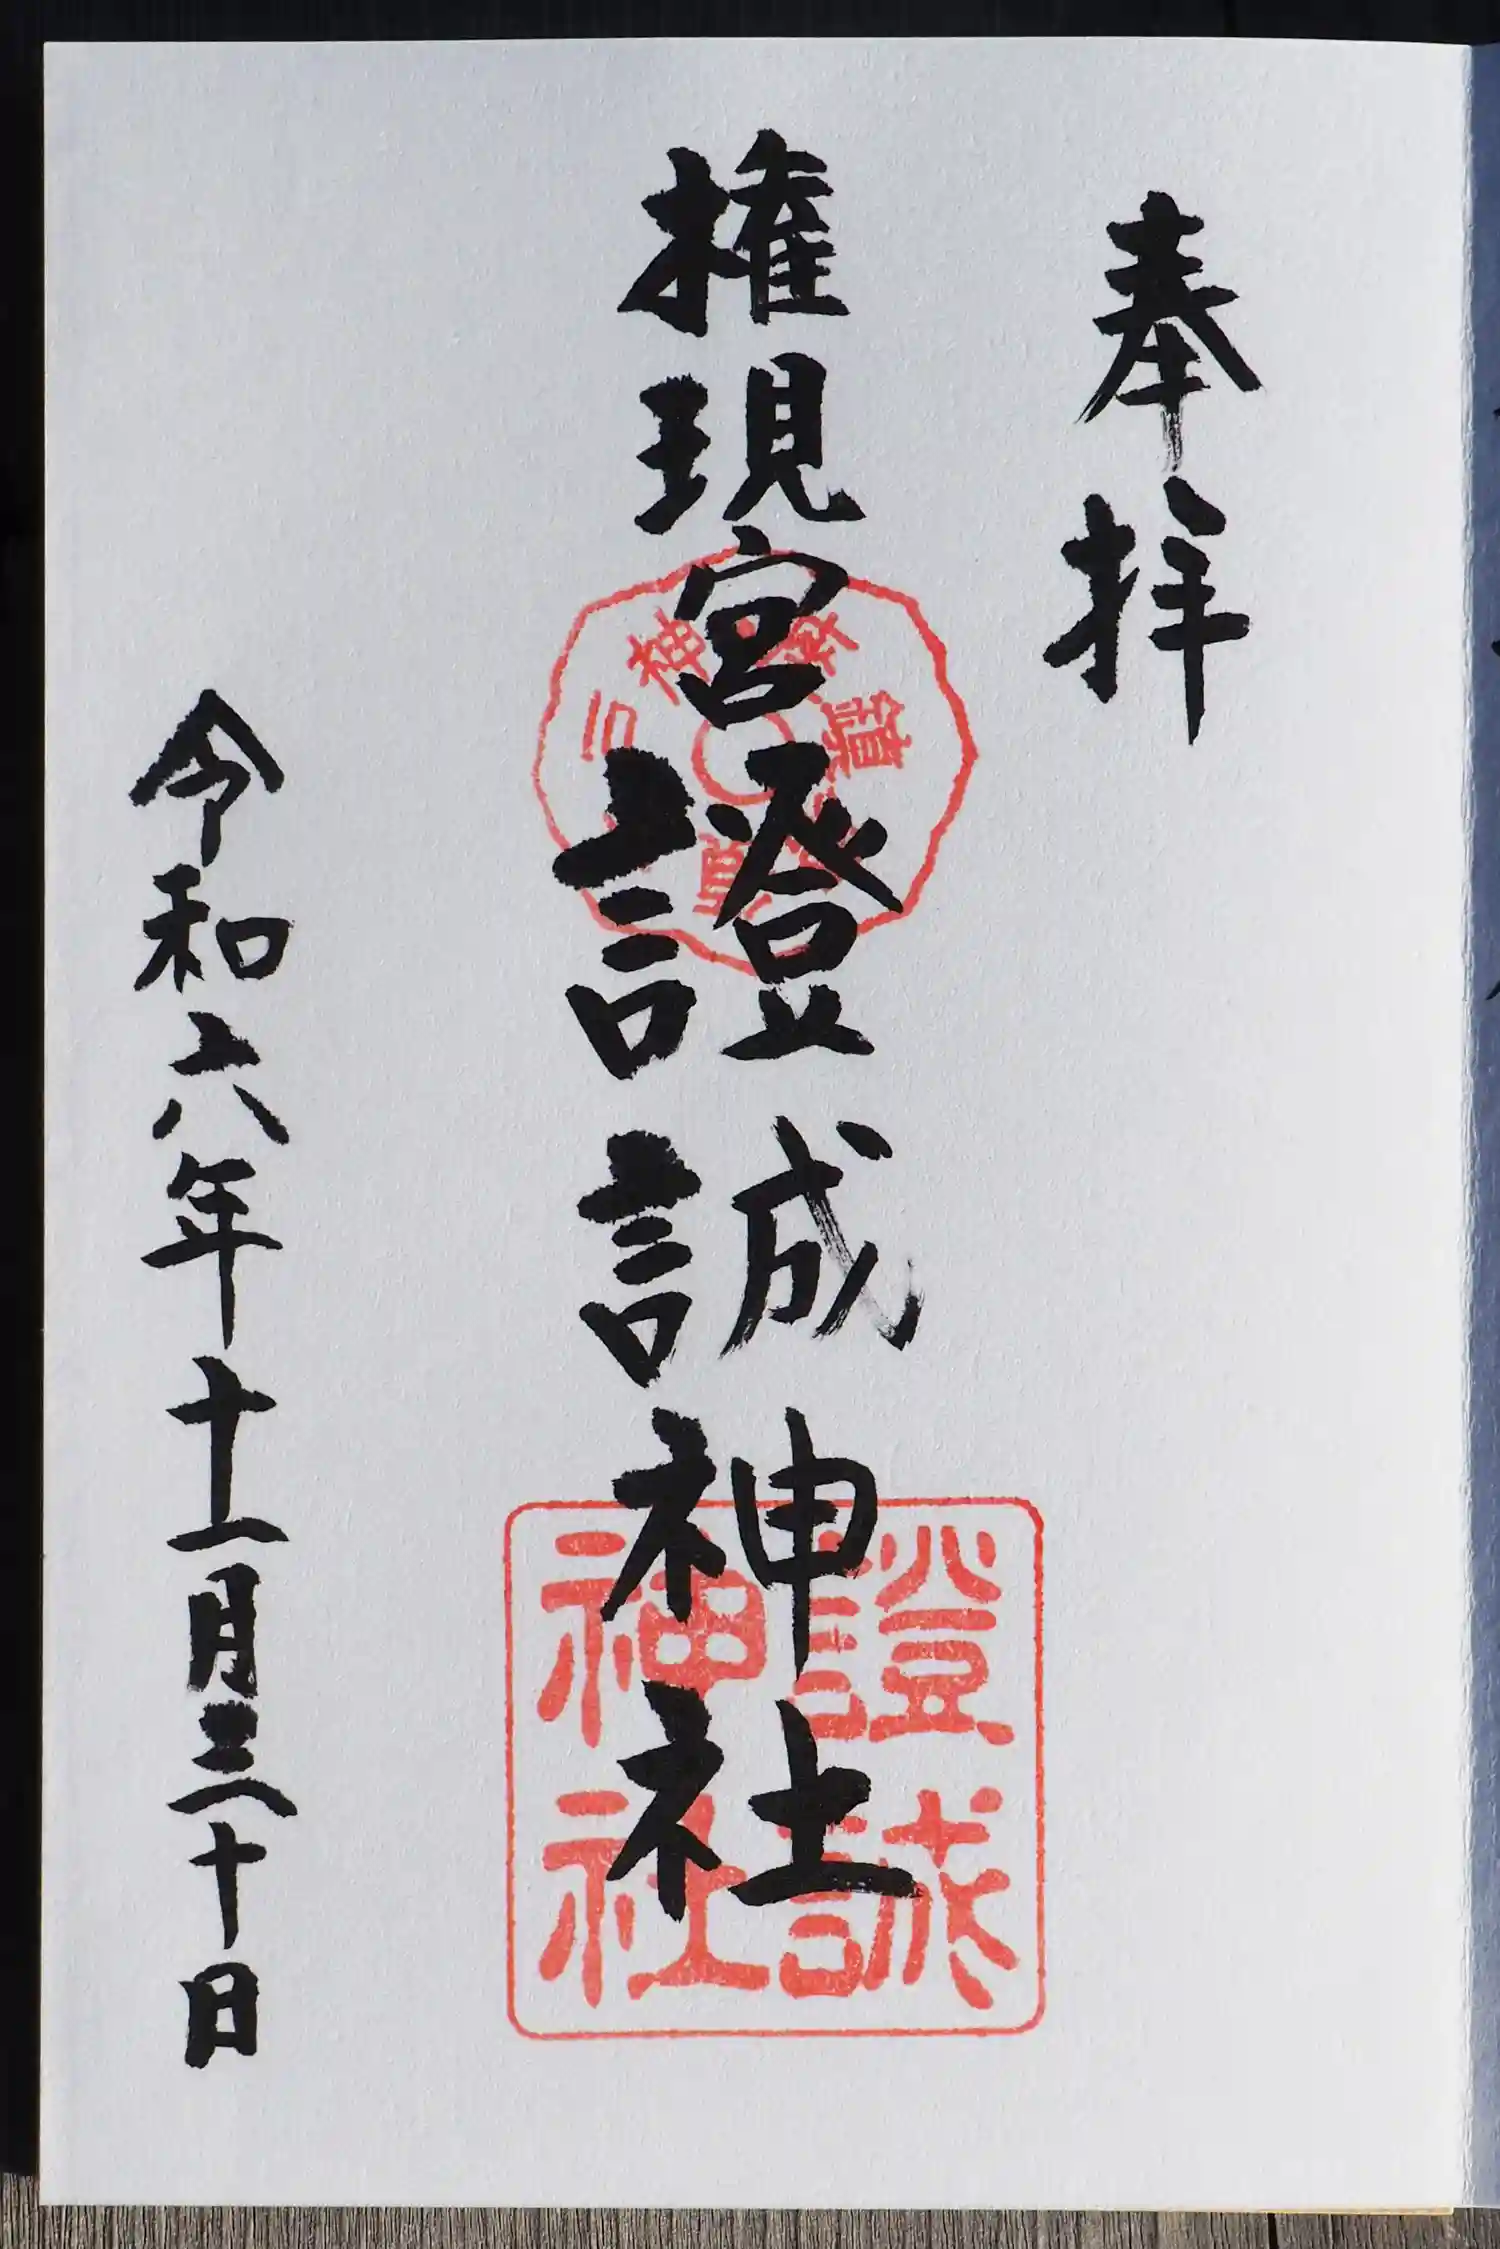 奉拝
権現宮證誠神社
證誠
神社
令和六年十一月三十日